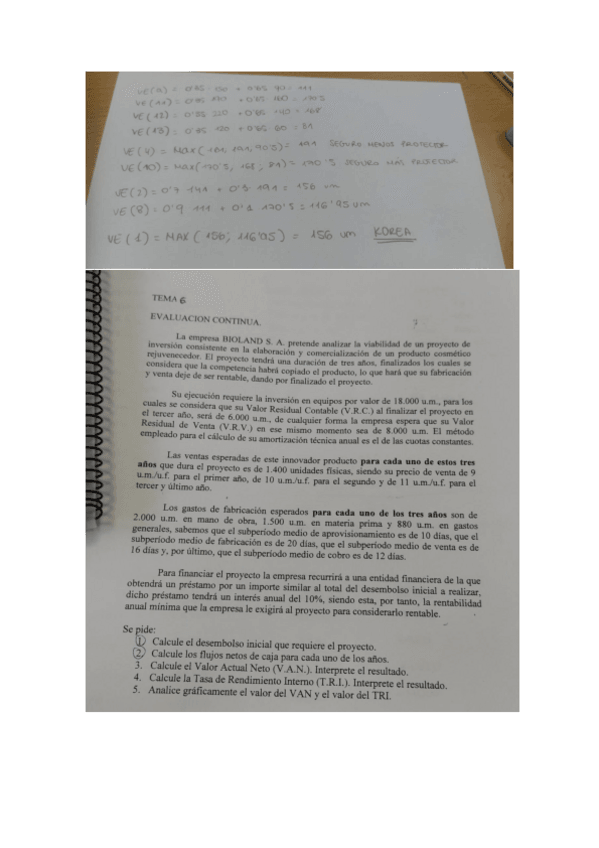 VE(9) = 0'85 + 0'85 40 = 111
VE(11) = 0'85 190 + 0'85 160 = 170'5
VE(12) = 0'35 220 + 0'65 140 = 168
VE(13) = 0'35 120 + 0'65 60 = 81
VE(4) = MAX( , 191, 90'5) = 191 SEGURO MENOS PROTECTOR
VE(10) = MAX(170'5, 168, 81) = 170'5 SEGURO MÁS PROTECTOR
VE(2) = 0'7 141 + 0'3 191 = 156 um
VE(8) = 0'9 111 + 0'1 170'5 = 116'95 um
VE(1) = MAX(156; 116'95) = 156 um KOREA
TEMA 6
EVALUACION CONTINUA.
La empresa BIOLAND S. A. pretende analizar la viabilidad de un proyecto de
inversión consistente en la elaboración y comercialización de un producto cosmético
rejuvenecedor. El proyecto tendrá una duración de tres años, finalizados los cuales se
considera que la competencia habrá copiado el producto, lo que hará que su fabricación
y venta deje de ser rentable, dando por finalizado el proyecto.
Su ejecución requiere la inversión en equipos por valor de 18.000 u.m., para los
cuales se considera que su Valor Residual Contable (V.R.C.) al finalizar el proyecto en
el tercer año, será de 6.000 u.m., de cualquier forma la empresa espera que su Valor
Residual de Venta (V.R.V.) en ese mismo momento sea de 8.000 u.m. El método
empleado para el cálculo de su amortización técnica anual es el de las cuotas constantes.
Las ventas esperadas de este innovador producto para cada uno de estos tres
años que dura el proyecto es de 1.400 unidades físicas, siendo su precio de venta de 9
u.m./u.f. para el primer año, de 10 u.m./u.f. para el segundo y de 11 u.m./u.f. para el
tercer y último año.
Los gastos de fabricación esperados para cada uno de los tres años son de
2.000 u.m. en mano de obra, 1.500 u.m. en materia prima y 880 u.m. en gastos
generales, sabemos que el subperiodo medio de aprovisionamiento es de 10 días, que el
subperiodo medio de fabricación es de 20 días, que el subperiodo medio de venta es de
16 días y, por último, que el subperiodo medio de cobro es de 12 días.
Para financiar el proyecto la empresa recurrirá a una entidad financiera de la que
obtendrá un préstamo por un importe similar al total del desembolso inicial a realizar,
dicho préstamo tendrá un interés anual del 10%, siendo esta, por tanto, la rentabilidad
anual mínima que la empresa le exigirá al proyecto para considerarlo rentable.
Se pide:
1 Calcule el desembolso inicial que requiere el proyecto.
2. Calcule los flujos netos de caja para cada uno de los años.
3. Calcule el Valor Actual Neto (V.A.N.). Interprete el resultado.
4. Calcule la Tasa de Rendimiento Interno (T.R.I.). Interprete el resultado.
5. Analice gráficamente el valor del VAN y el valor del TRI.